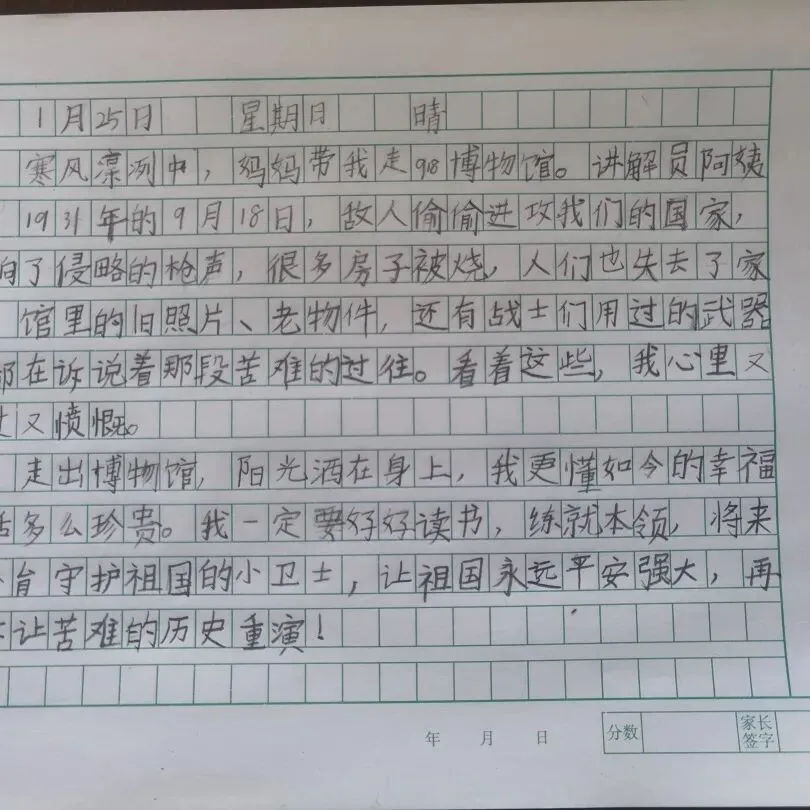 1月25日 星期日 晴
寒风凛冽中，妈妈带我走98博物馆。讲解员阿姨
1931年的9月18日，敌人偷偷进攻我们的国家，
了侵略的枪声，很多房子被烧，人们也失去了家
馆里的旧照片、老物件，还有战士们用过的武器
都在诉说着那段苦难的过往。看着这些，我心里又
又愤慨。
走出博物馆，阳光洒在身上，我更懂如今的幸福
多么珍贵。我一定要好好读书，练就本领，将来
守护祖国的小卫士，让祖国永远平安强大，再
让苦难的历史重演！
年 月 日 分数 家长签字